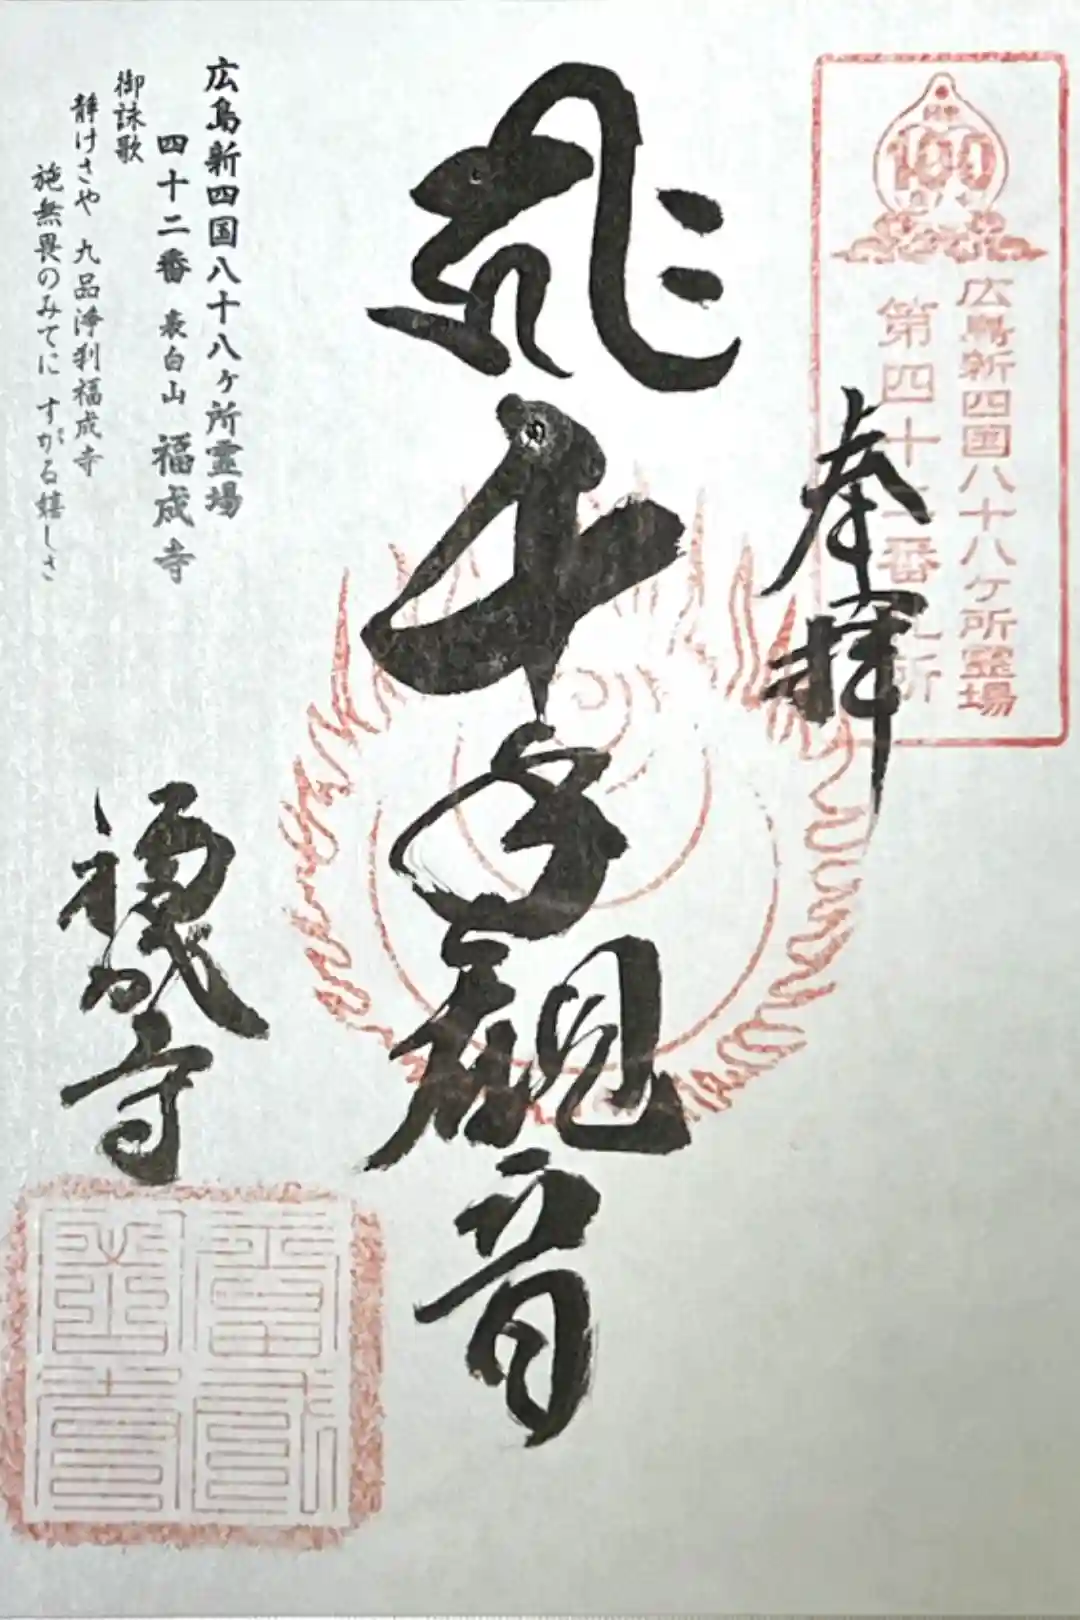 広島新四国八十八ヶ所霊場
第四十二番札所
奉拝
千手観音
福成寺
広島新四国八十八ヶ所霊場
四十二番 表白山 福成寺
御詠歌
静けさや 九品浄刹福成寺
施無畏のみてに すがる嬉しさ
100